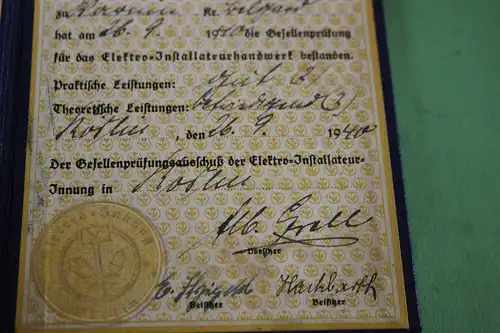 zu Kr. Belgard
hat am 26. 9. 1940 die Gesellenprüfung
für das Elektro-Installateurhandwerk bestanden.
Praktische Leistungen: gut (2)
Theoretische Leistungen: befriedigend (3)
Köslin, den 26. 9. 1940
Der Gesellenprüfungsausschuß der Elektro-Installateur-
Innung in Köslin
Vorsitzer
Hackbarth
Beisitzer Beisitzer